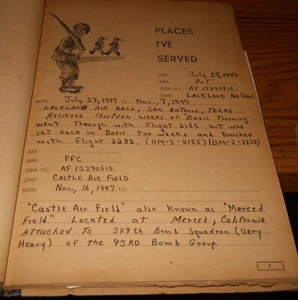 PLACES
I'VE
SERVED
DATE: July 29, 1947
RANK: Pvt.
SERIAL NO: AF 12290815
CAMP: LACKLAND Air Base
FROM: July 29, 1947 to Nov., 7, 1947
LACKLAND AIR BASE, SAN ANTONIO, TEXAS
RECEIVED THIRTEEN WEEKS OF "BASIC TRAINING"
WENT THROUGH WITH FLIGHT 2185 BUT WAS
SET BACK IN BASIC TWO WEEKS AND FINISHED
WITH FLIGHT 2232, (BM-3-2185) (BM-2-2232)
DATE:
RANK: PFC
SERIAL NO: AF 12290815
CAMP: CASTLE AIR FIELD
FROM: Nov., 16, 1947 to
"CASTLE AIR FIELD" also known as "MERCED
FIELD." LOCATED at MERCED, CALIFORNIA
ATTACHED TO 329th BOMB SQUADRON (VERY
HEAVY) of the 93RD BOMB GROUP.